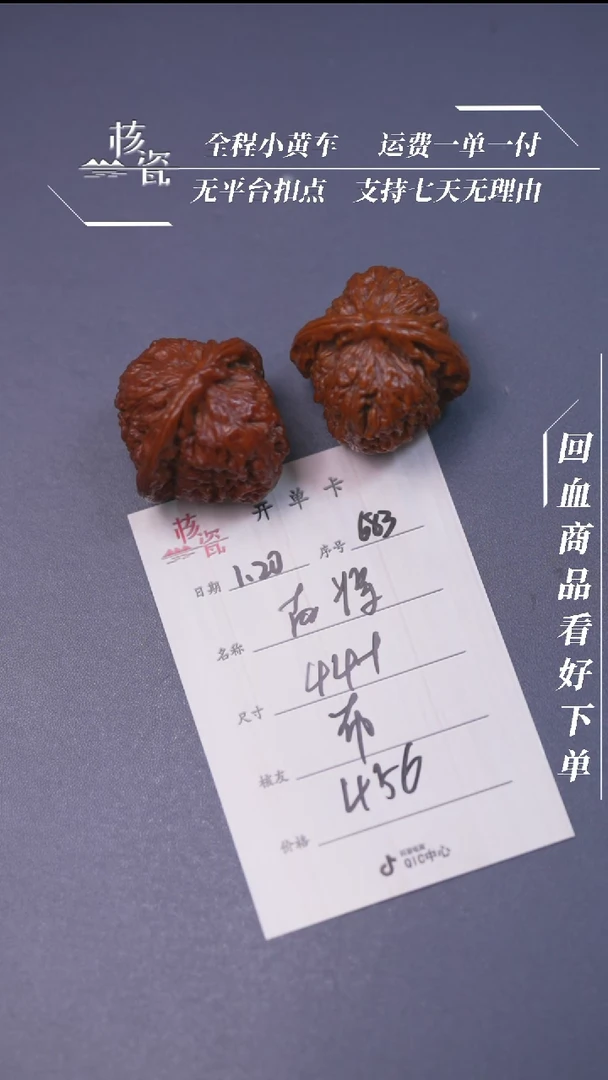 核瓷
全程小黄车 运费一单一付
无平台扣点 支持七天无理由
回血商品看好下单
核瓷
开单卡
日期 1.20 序号 683
名称
尺寸 441
核友 布
价格 456
QIC中心